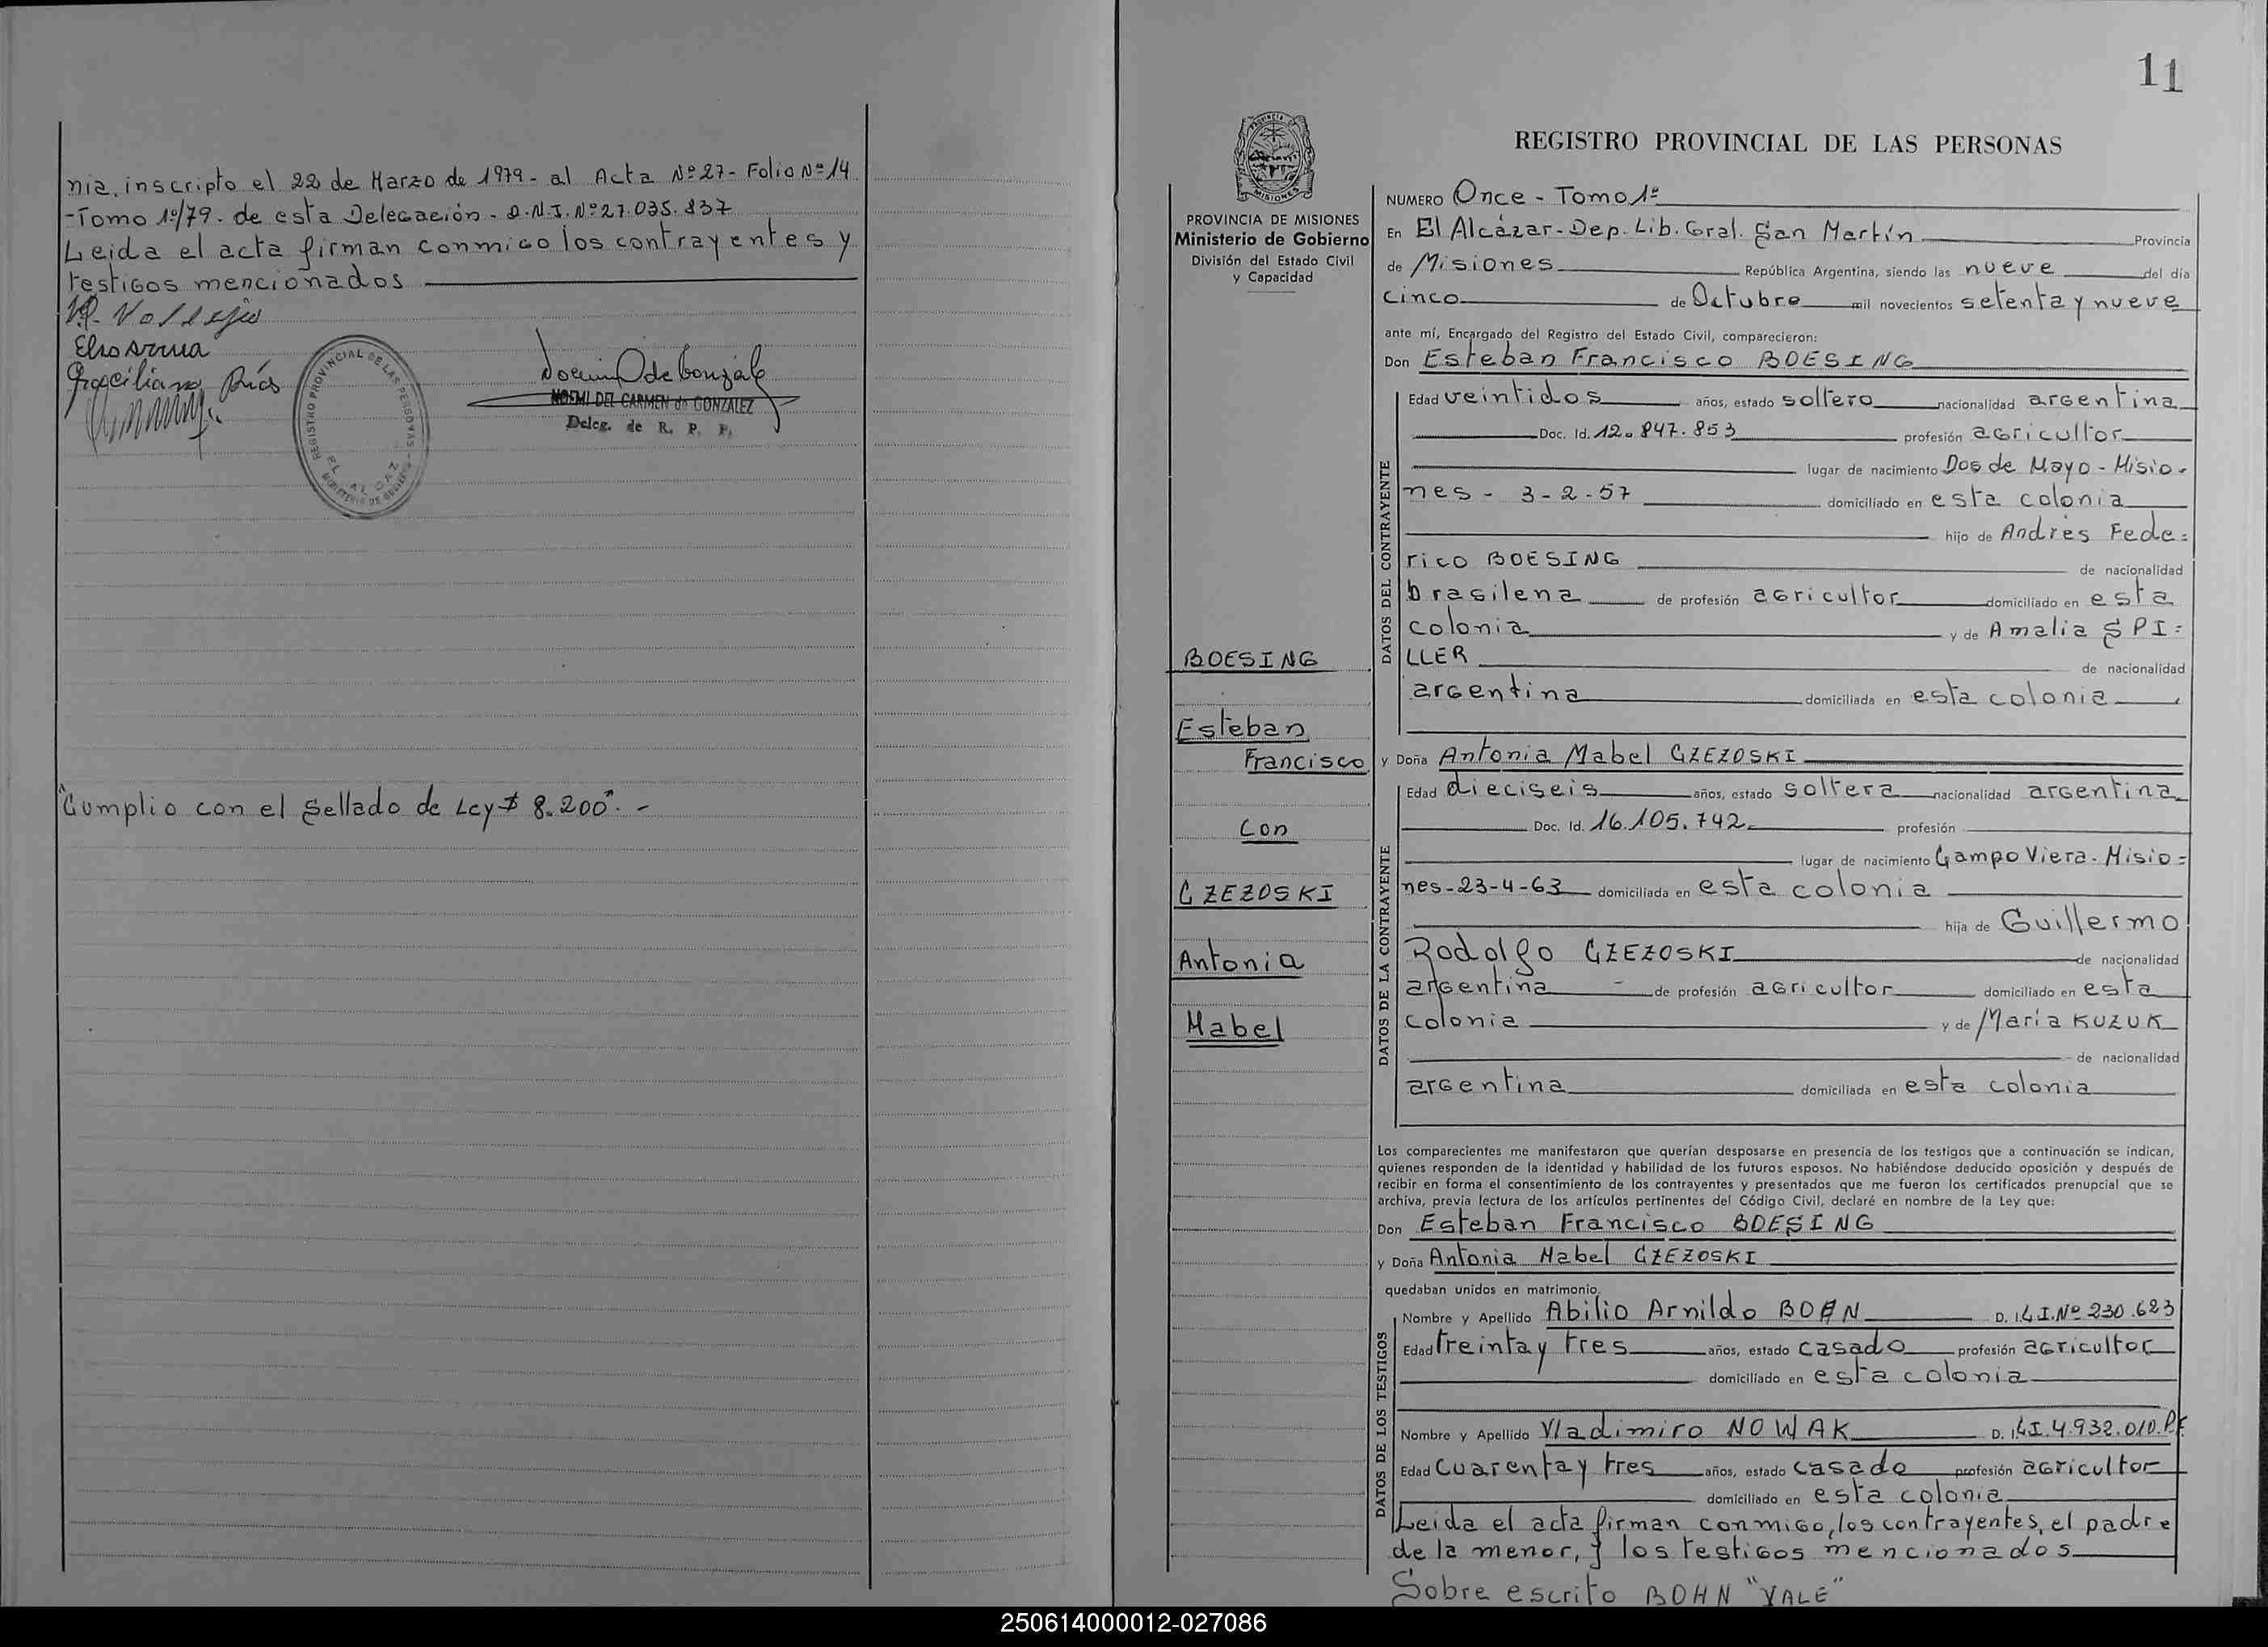 nia, inscripto el 22 de Marzo de 1979- al Acta Nº27- Folio Nº14
-Tomo 1º/79. de esta Delegación - D.N.I. Nº27.035.837
Leida el acta firman conmigo los contrayentes y
testigos mencionados
NOEMI DEL CARMEN de GONZALEZ
Deleg. de R. P. P.
REGISTRO PROVINCIAL DE LAS PERSONAS
"Cumplio con el Sellado de Ley $ 8.200". -
11
PROVINCIA DE MISIONES
Ministerio de Gobierno
División del Estado Civil
y Capacidad
BOESING
Esteban
Francisco
Con
CZEZOSKI
Antonia
Mabel
REGISTRO PROVINCIAL DE LAS PERSONAS
NUMERO Once - Tomo 1º
En El Alcázar-Dep. Lib. Gral. San Martín Provincia
de Misiones República Argentina, siendo las nueve del día
cinco de Octubre mil novecientos setenta y nueve
ante mí, Encargado del Registro del Estado Civil, comparecieron:
Don Esteban Francisco BOESING
DATOS DEL CONTRAYENTE
Edad veintidos años, estado soltero nacionalidad argentina
Doc. Id. 12.847.853 profesión agricultor
lugar de nacimiento Dos de Mayo - Misio-
nes - 3-2-57 domiciliado en esta colonia
hijo de Andrès Fede=
rico BOESING de nacionalidad
brasilena de profesión agricultor domiciliado en esta
colonia y de Amalia SPI=
LLER de nacionalidad
argentina domiciliada en esta colonia
y Doña Antonia Mabel CZEZOSKI
DATOS DE LA CONTRAYENTE
Edad dieciseis años, estado soltera nacionalidad argentina
Doc. Id. 16.105.742- profesión
lugar de nacimiento Campo Viera - Misio=
nes-23-4-63 domiciliada en esta colonia
hija de Guillermo
Rodolfo CZEZOSKI de nacionalidad
argentina - de profesión agricultor domiciliado en esta
colonia y de María KUZUK
de nacionalidad
argentina domiciliada en esta colonia
Los comparecientes me manifestaron que querían desposarse en presencia de los testigos que a continuación se indican,
quienes responden de la identidad y habilidad de los futuros esposos. No habiéndose deducido oposición y después de
recibir en forma el consentimiento de los contrayentes y presentados que me fueron los certificados prenupcial que se
archiva, previa lectura de los artículos pertinentes del Código Civil, declaré en nombre de la Ley que:
Don Esteban Francisco BOESING
y Doña Antonia Mabel CZEZOSKI
quedaban unidos en matrimonio.
DATOS DE LOS TESTIGOS
Nombre y Apellido Abilio Arnildo BOHN D. I. C.I.Nº 230.623
Edad treinta y tres años, estado casado profesión agricultor
domiciliado en esta colonia
Nombre y Apellido Vladimiro NOWAK D. I. C.I. 4.932.010.P.F.
Edad cuarenta y tres años, estado casado profesión agricultor
domiciliado en esta colonia
Leida el acta firman conmigo, los contrayentes, el padre
de la menor, y los testigos mencionados
Sobre escrito BOHN "VALE"
250614000012-027086